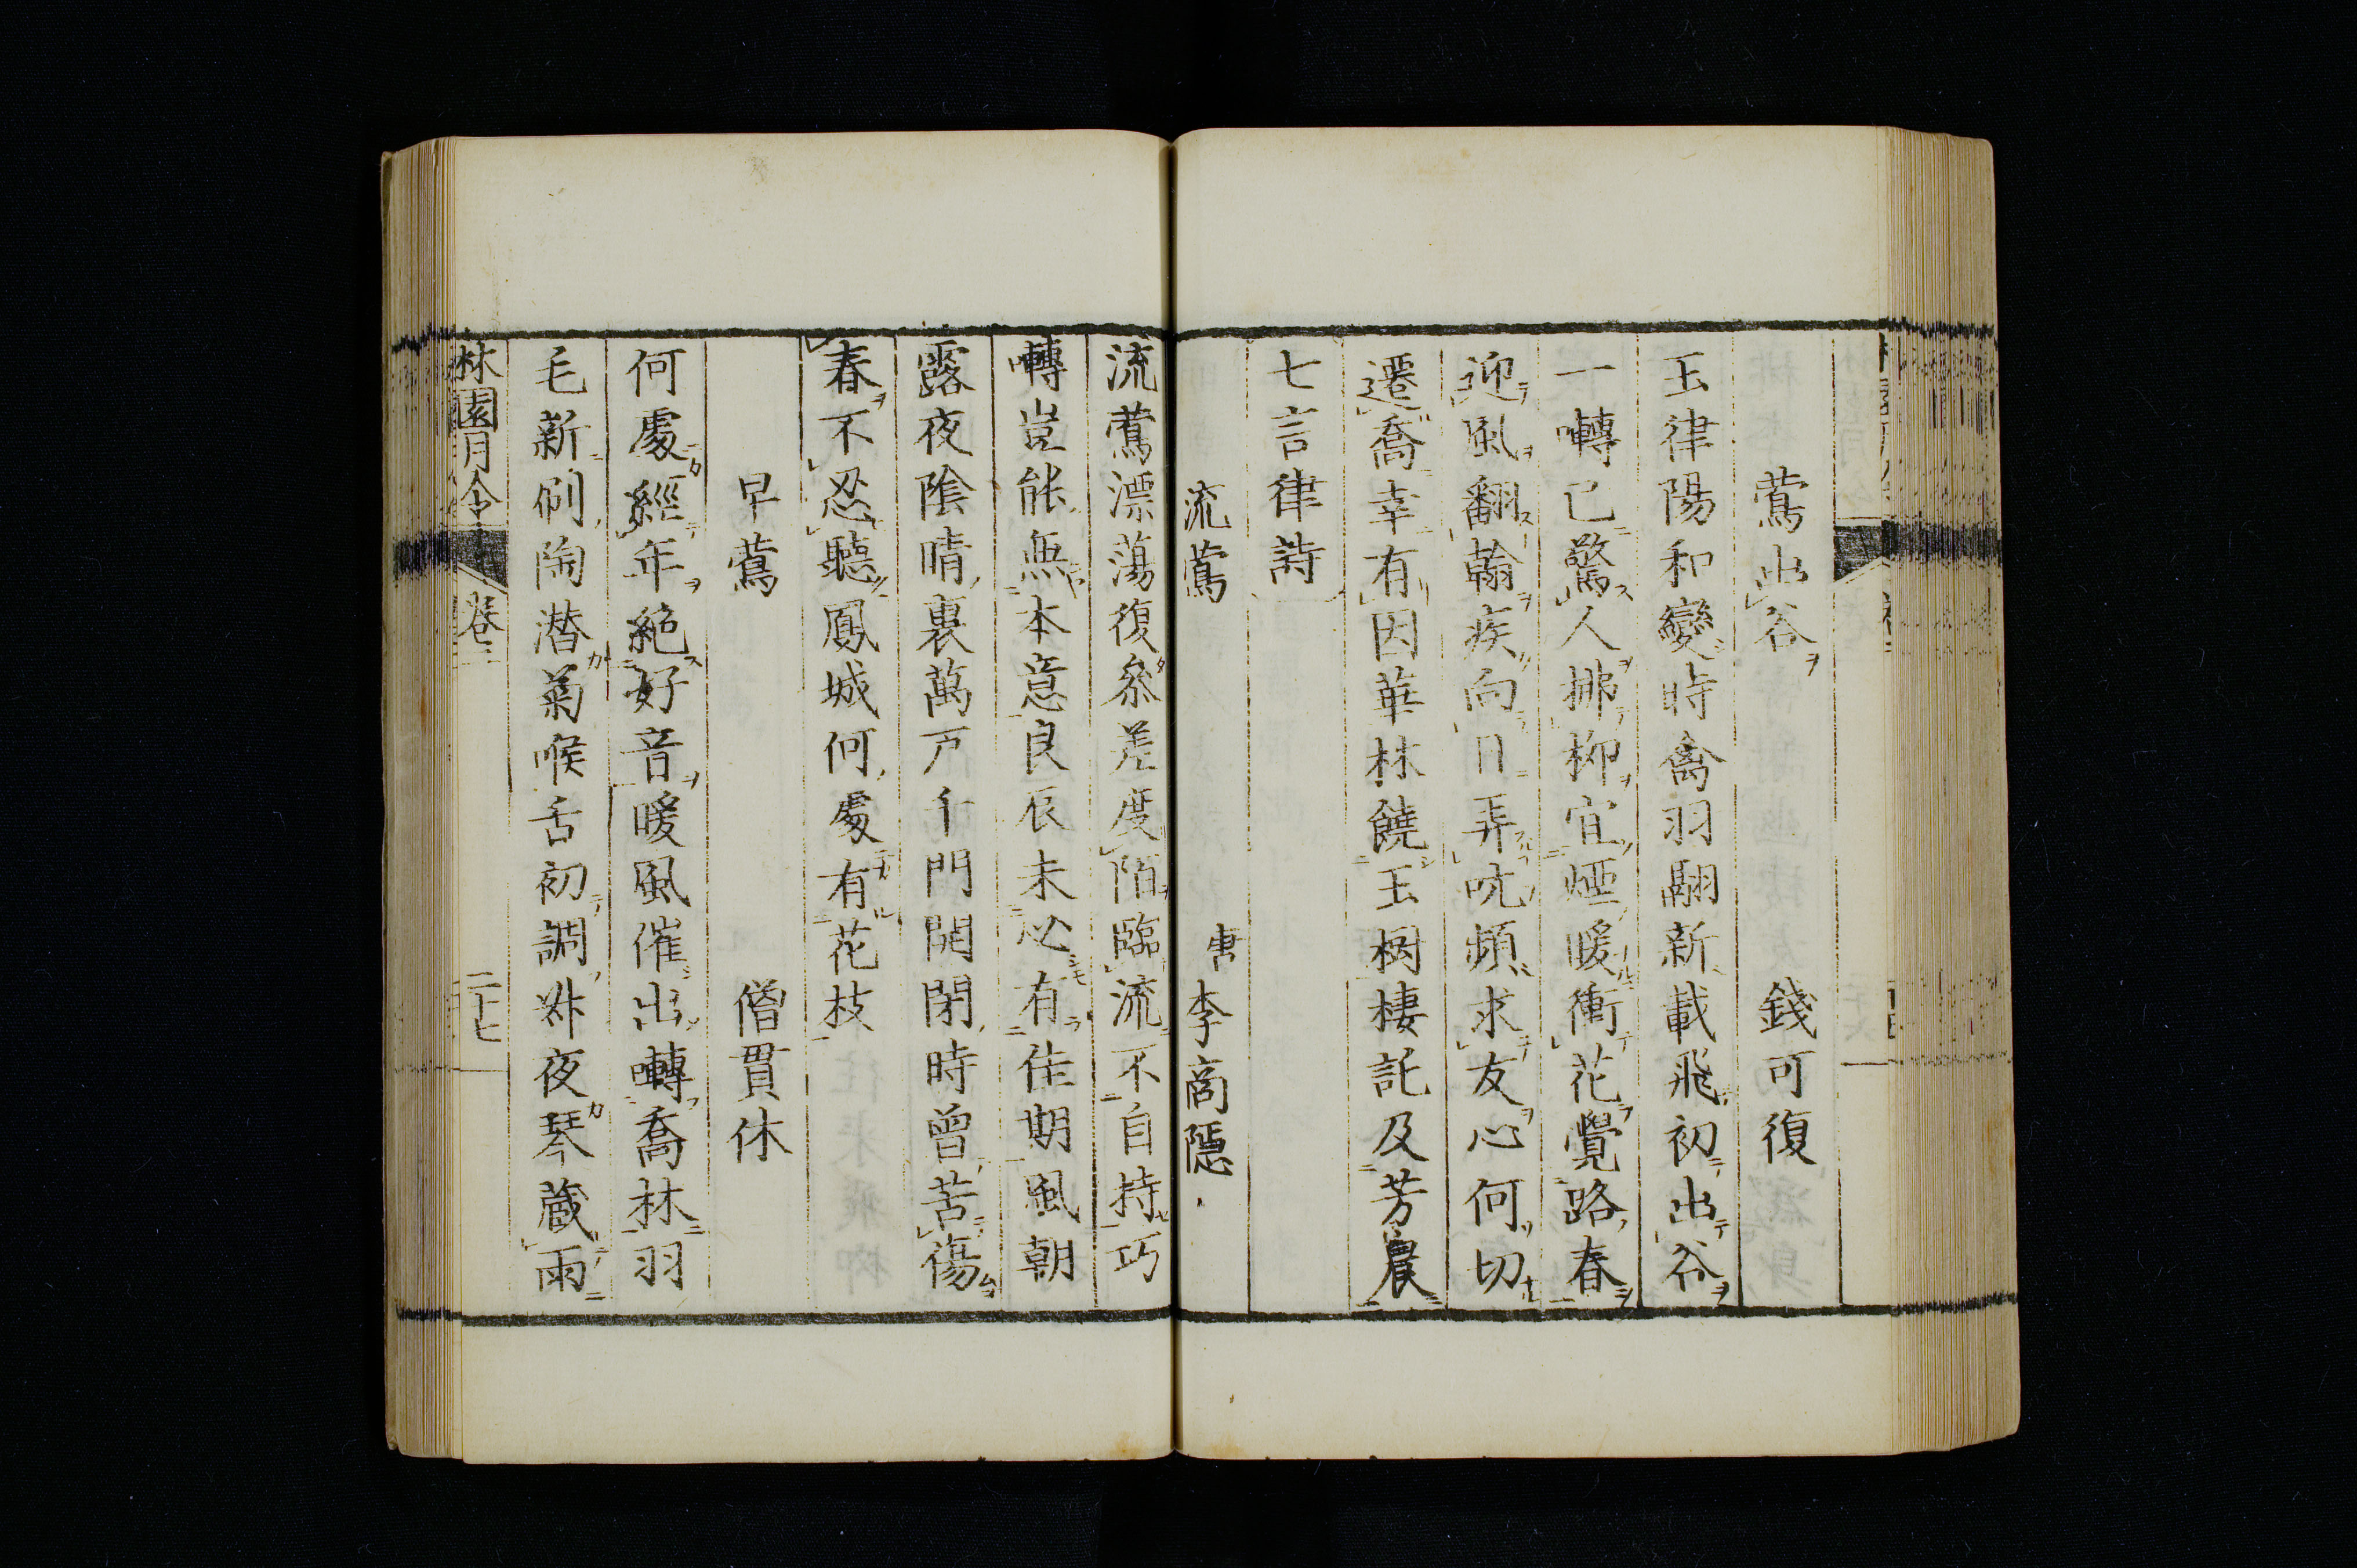 鶯出谷 錢可復
玉律陽和變時禽羽翮新載飛初出谷
一囀已驚人拂柳宜煙暖衝花覺路春
迎風翻翰疾向日弄吭頻求友心何切
遷喬幸有因華林饒玉樹棲託及芳晨
七言律詩
流鶯 唐 李商隱
流鶯漂蕩復參差度陌臨流不自持巧
囀豈能無本意良辰未必有佳期風朝
露夜陰晴裏萬戸千門開閉時曾苦傷
春不忍聽鳳城何處有花枝
早鶯 僧貫休
何處經年絶好音暖風催出囀喬林羽
毛新刷陶潛菊喉舌初調叔夜琴藏雨
林園月令 卷三 二十七